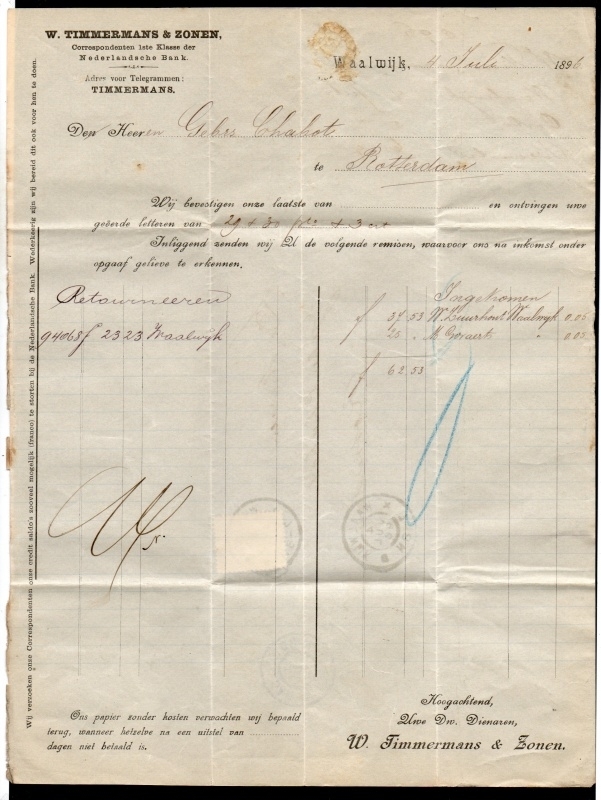 W. TIMMERMANS & ZONEN,
Correspondenten 1ste Klasse der
Nederlandsche Bank.
Adres voor Telegrammen:
TIMMERMANS.
Waalwijk, 4 Juli 1896
Den Heeren Gebrs Chabot
te Rotterdam
Wij bevestigen onze laatste van en ontvingen uwe
geëerde letteren van 29 + 30 pdo + 3 crt
Inliggend zenden wij U de volgende remisen, waarvoor ons na inkomst onder
opgaaf gelieve te erkennen.
Retourneeren
94068 f 23 23 Waalwijk
Ingekomen
f 37.53 W. Zuurhout Waalwijk 0.05
25 „ M. Govaert „ 0.05
f 62.53
Ons papier zonder kosten verwachten wij bepaald
terug, wanneer hetzelve na een uitstel van
dagen niet betaald is.
Hoogachtend,
Uwe Dw. Dienaren,
W. Timmermans & Zonen.
Wij verzoeken onze Correspondenten onze credit saldo's zooveel mogelijk (franco) te storten bij de Nederlandsche Bank. Wederkeerig zijn wij bereid dit ook voor hen te doen.